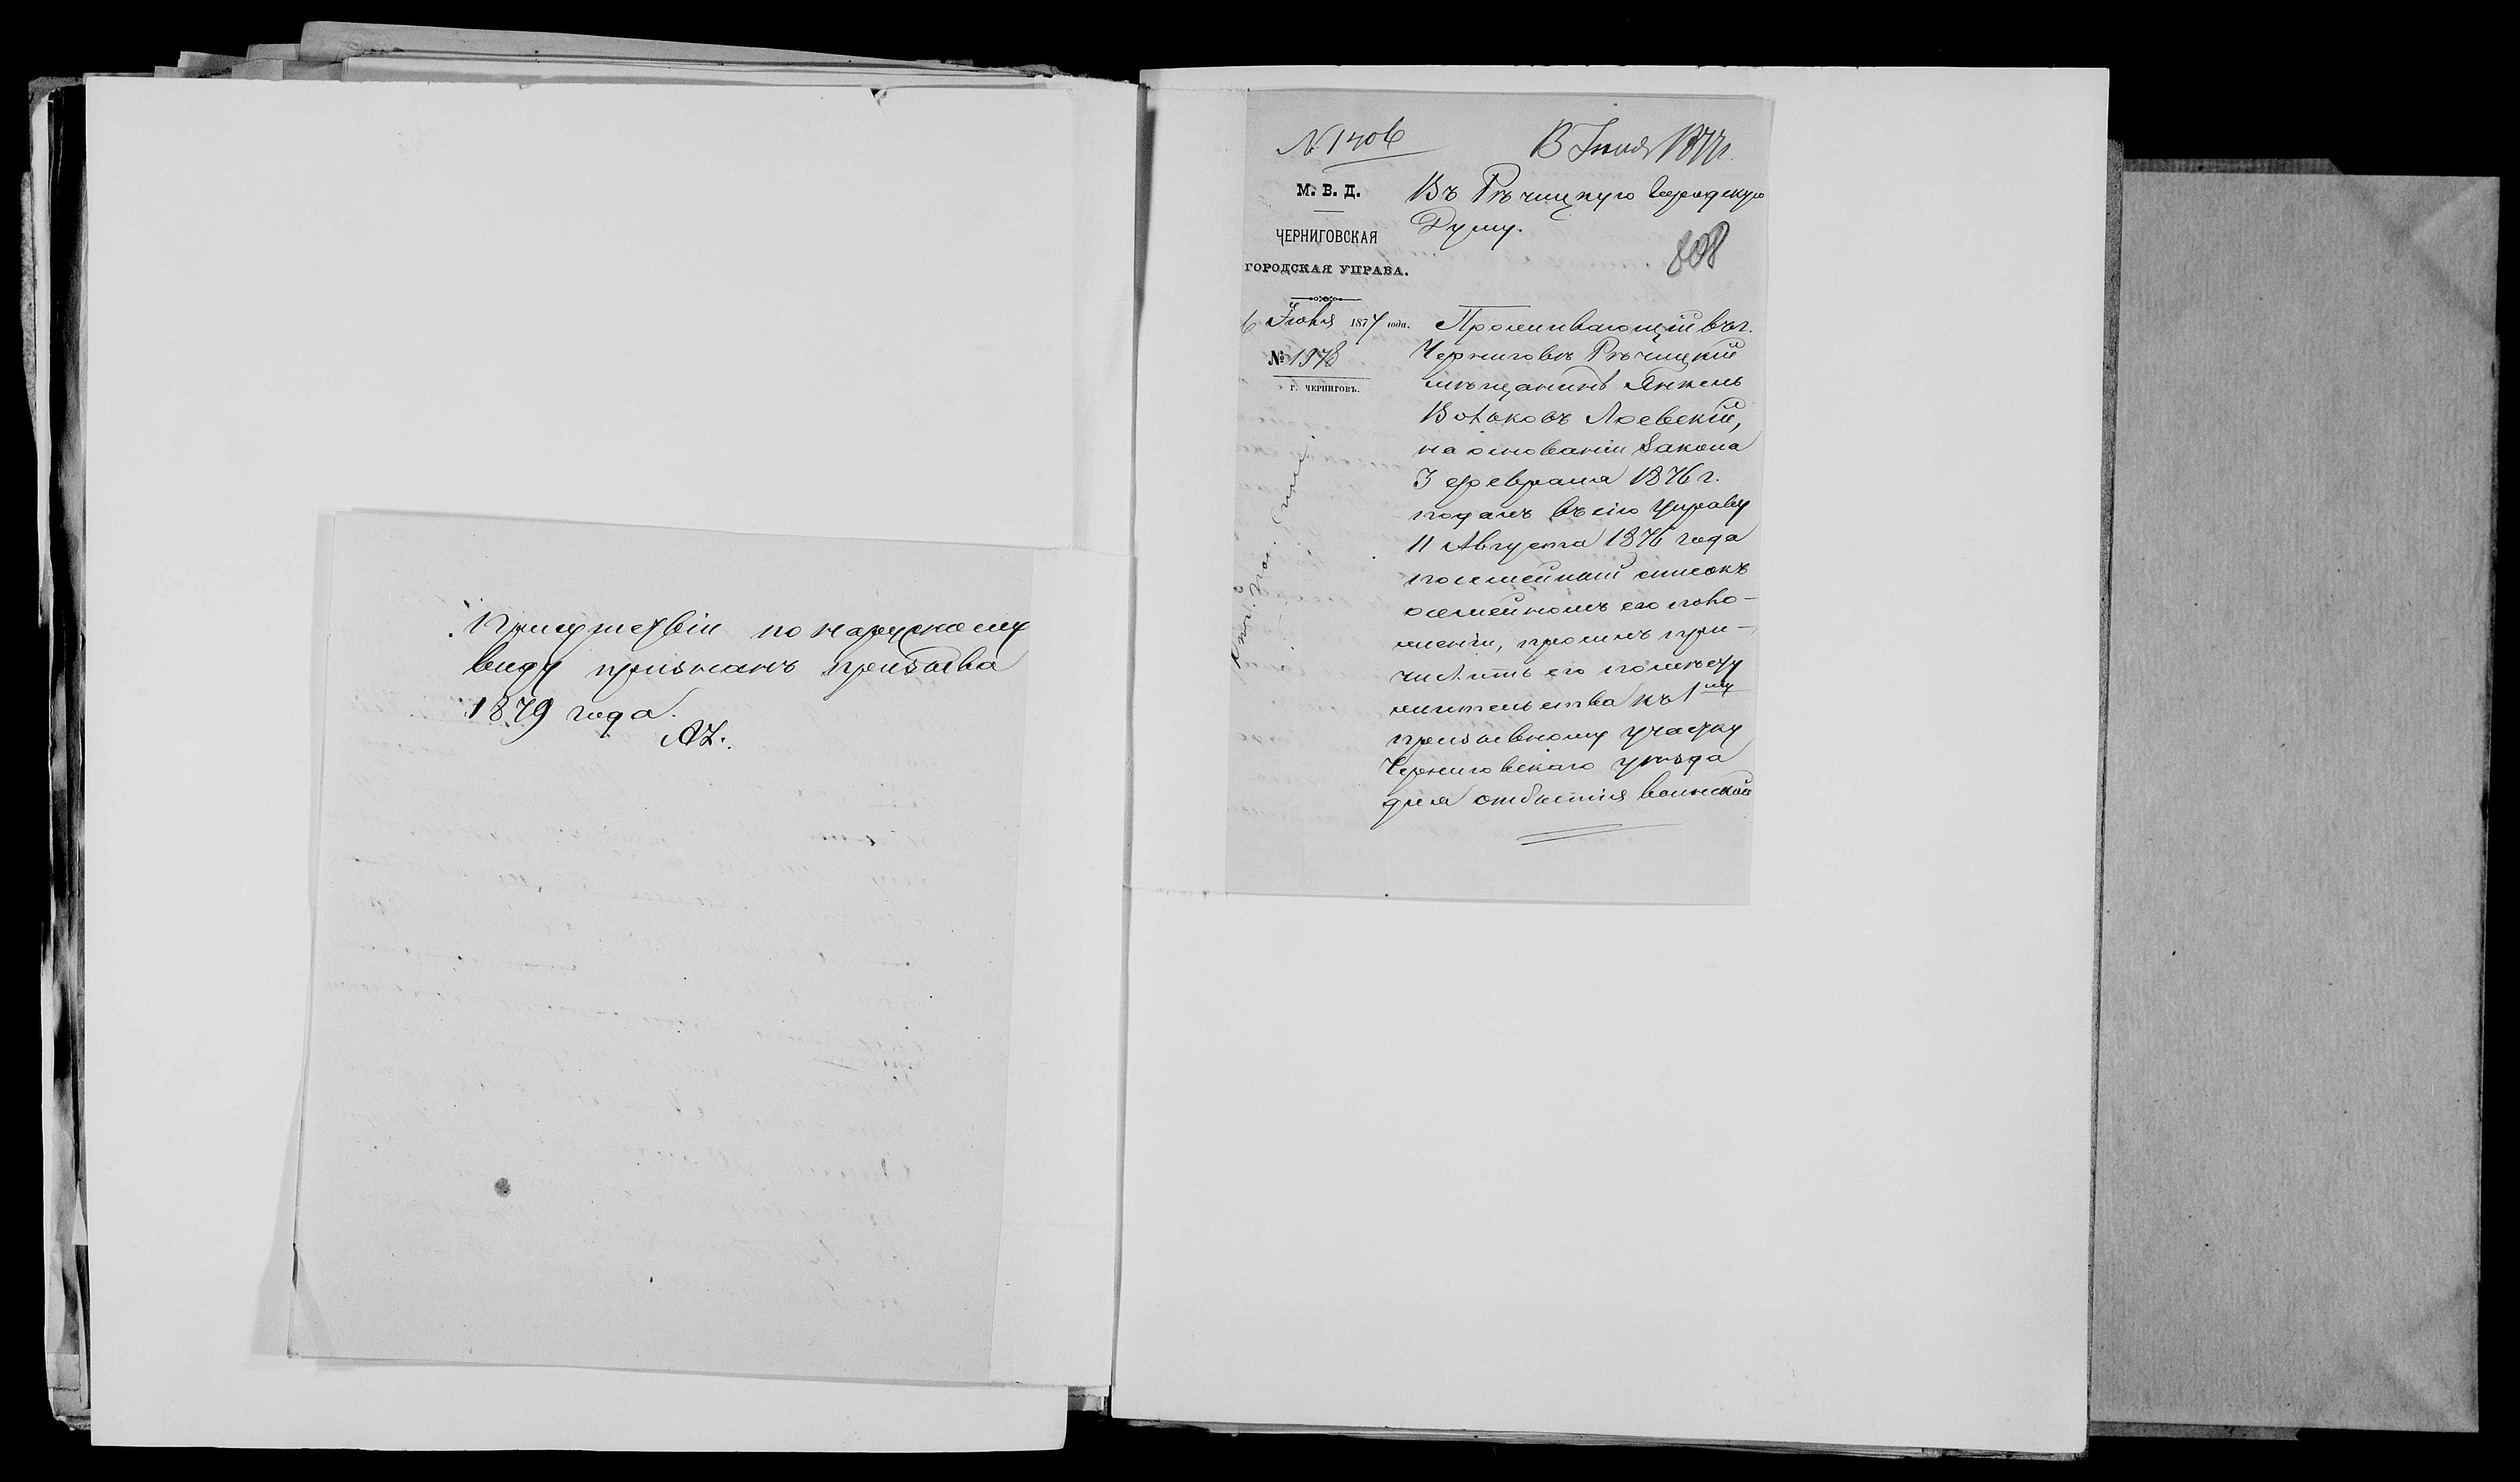 Присутствіи по наружному
виду признанъ призыва
1879 года.
АЗ.
№ 1406
13 Іюня 1877 г.
М. В. Д.
ЧЕРНИГОВСКАЯ
ГОРОДСКАЯ УПРАВА.
6 Іюня 1877 года.
№ 1978
Г. ЧЕРНИГОВЪ.
Въ Рѣчицкую Городскую
Думу.
808
Проживающій въ г.
Черниговѣ Рѣчицкій
мѣщанинъ Янкель
Вольковъ Лоевскій,
на основаніи Закона
3 февраля 1876 г.
подалъ въ сію Управу
11 Августа 1876 года
посемейный списокъ
о семейномъ его поло-
женіи, просилъ при-
числить его по мѣсту
жительства къ 1му
призывному участку
Черниговскаго уѣзда
для отбытія воинской